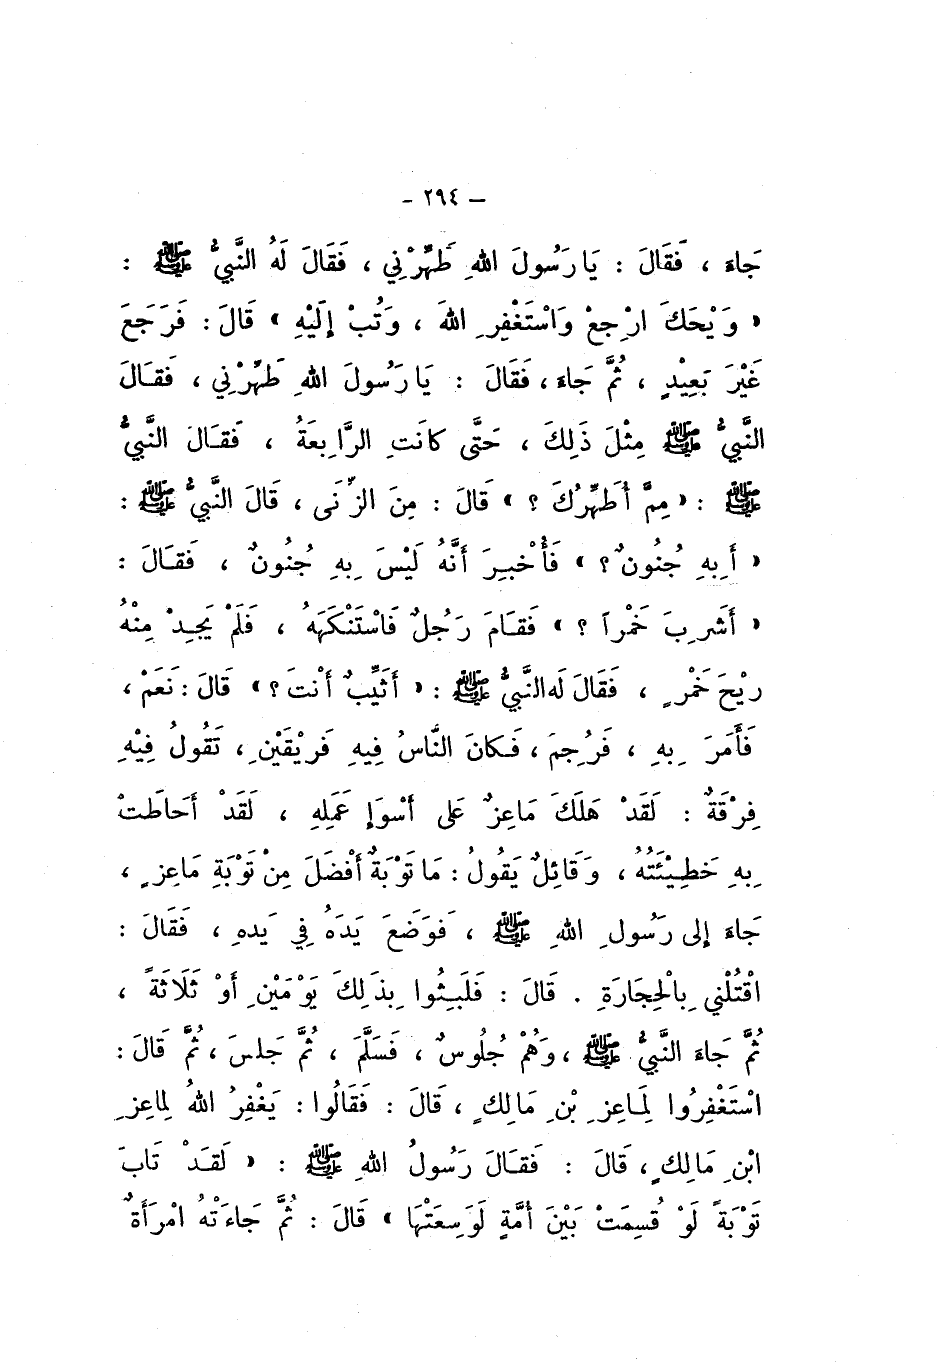 – ٢٩٤ –
جَاءَ ، فَقَالَ : يَا رَسُولَ اللهِ طَهِّرْنِي ، فَقَالَ لَهُ النَّبِيُّ ﷺ :
« وَيْحَكَ ارْجِعْ وَاسْتَغْفِرِ اللهَ ، وَتُبْ إِلَيْهِ » قَالَ : فَرَجَعَ
غَيْرَ بَعِيْدٍ ، ثُمَّ جَاءَ ، فَقَالَ : يَا رَسُولَ اللهِ طَهِّرْنِي ، فَقَالَ
النَّبِيُّ ﷺ مِثْلَ ذَلِكَ ، حَتَّى كَانَتِ الرَّابِعَةُ ، فَقَالَ النَّبِيُّ
ﷺ : « مِمَّ أُطَهِّرُكَ ؟ » قَالَ : مِنَ الزِّنَى ، قَالَ النَّبِيُّ ﷺ :
« أَبِهِ جُنُونٌ ؟ » فَأُخْبِرَ أَنَّهُ لَيْسَ بِهِ جُنُونٌ ، فَقَالَ :
« أَشَرِبَ خَمْراً ؟ » فَقَامَ رَجُلٌ فَاسْتَنْكَهَهُ ، فَلَمْ يَجِدْ مِنْهُ
رِيْحَ خَمْرٍ ، فَقَالَ لَه النَّبِيُّ ﷺ : « أَثَيِّبٌ أَنْتَ ؟ » قَالَ : نَعَمْ ،
فَأَمَرَ بِهِ ، فَرُجِمَ ، فَكَانَ النَّاسُ فِيهِ فَرِيْقَيْنِ ، تَقُولُ فِيْهِ
فِرْقَةٌ : لَقَدْ هَلَكَ مَاعِزٌ عَلَى أَسْوَإِ عَمَلِهِ ، لَقَدْ أَحَاطَتْ
بِهِ خَطِيْئَتُهُ ، وَقَائِلٌ يَقُولُ : مَا تَوْبَةٌ أَفْضَلَ مِنْ تَوْبَةِ مَاعِزٍ ،
جَاءَ إِلى رَسُولِ اللهِ ﷺ ، فَوَضَعَ يَدَهُ فِي يَدِهِ ، فَقَالَ :
اقْتُلْنِي بِالْحِجَارَةِ . قَالَ : فَلَبِثُوا بِذَلِكَ يَوْمَيْنِ أَوْ ثَلَاثَةً ،
ثُمَّ جَاءَ النَّبِيُّ ﷺ ، وَهُمْ جُلُوسٌ ، فَسَلَّمَ ، ثُمَّ جَلَسَ ، ثُمَّ قَالَ :
اسْتَغْفِرُوا لِمَاعِزِ بْنِ مَالِكٍ ، قَالَ : فَقَالُوا : يَغْفِرُ اللهُ لِمَاعِزِ
ابْنِ مَالِكٍ ، قَالَ : فَقَالَ رَسُولُ اللهِ ﷺ : « لَقَدْ تَابَ
تَوْبَةً لَوْ قُسِمَتْ بَيْنَ أُمَّةٍ لَوَسِعَتْهَا » قَالَ : ثُمَّ جَاءَتْهُ امْرَأَةٌ